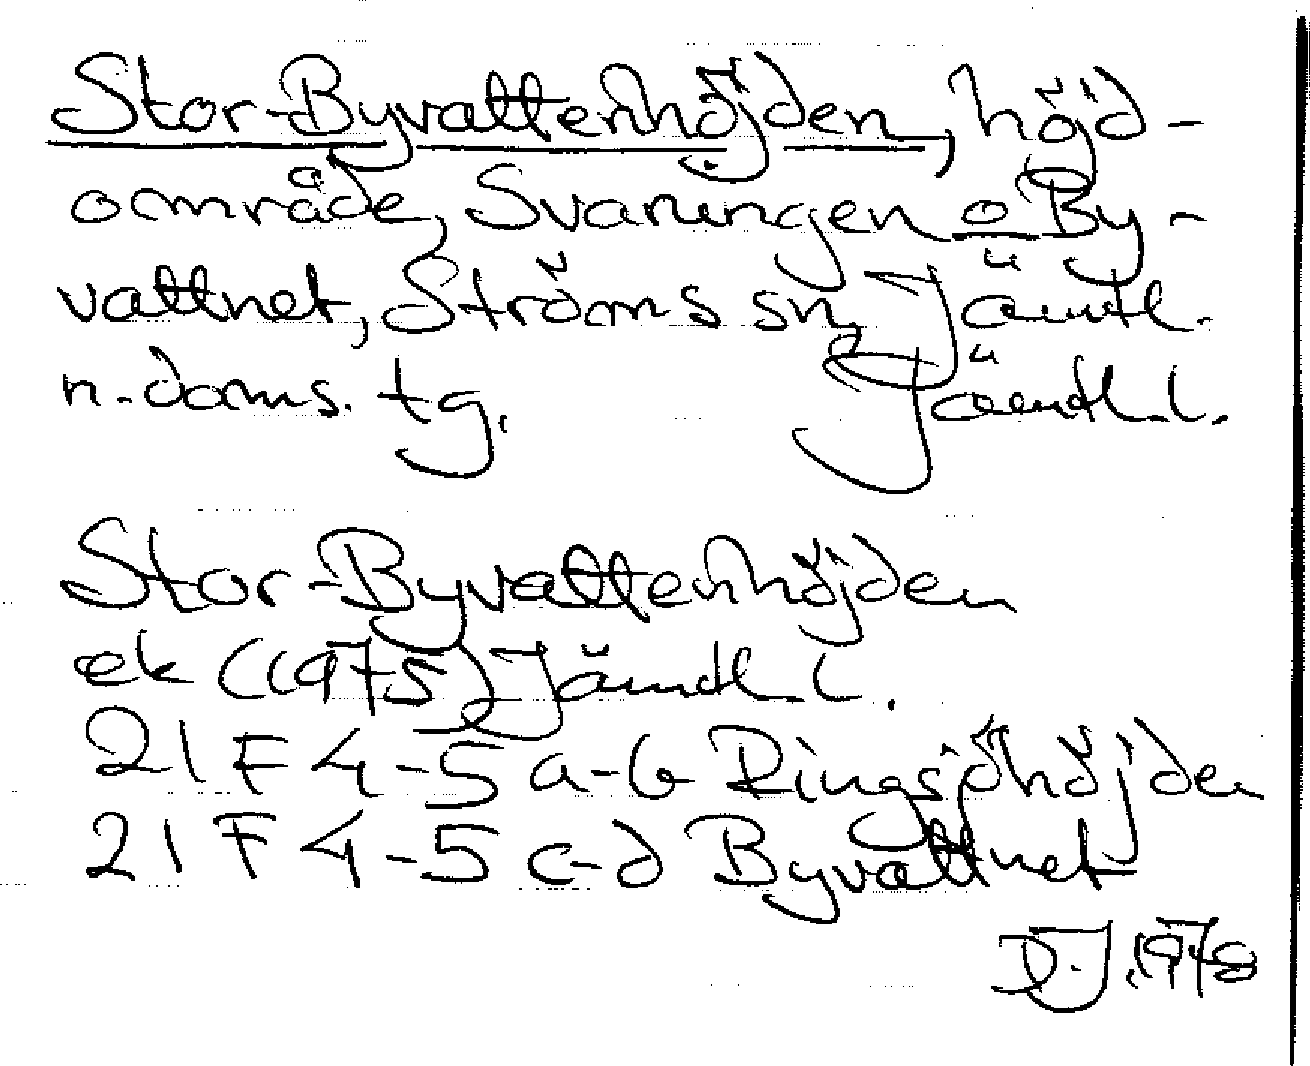 Stor-Byvattenhöjden, höjd-
område, Svaningen o By-
vattnet, Ströms sn, Jämtl.
n. doms. tg. Jämtl. l.
Stor-Byvattenhöjden
ek (1975) Jämtl l.
21 F 4-5 a-b Ringsjöhöjden
21 F 4-5 c-d Byvattnet
D.J. 1978